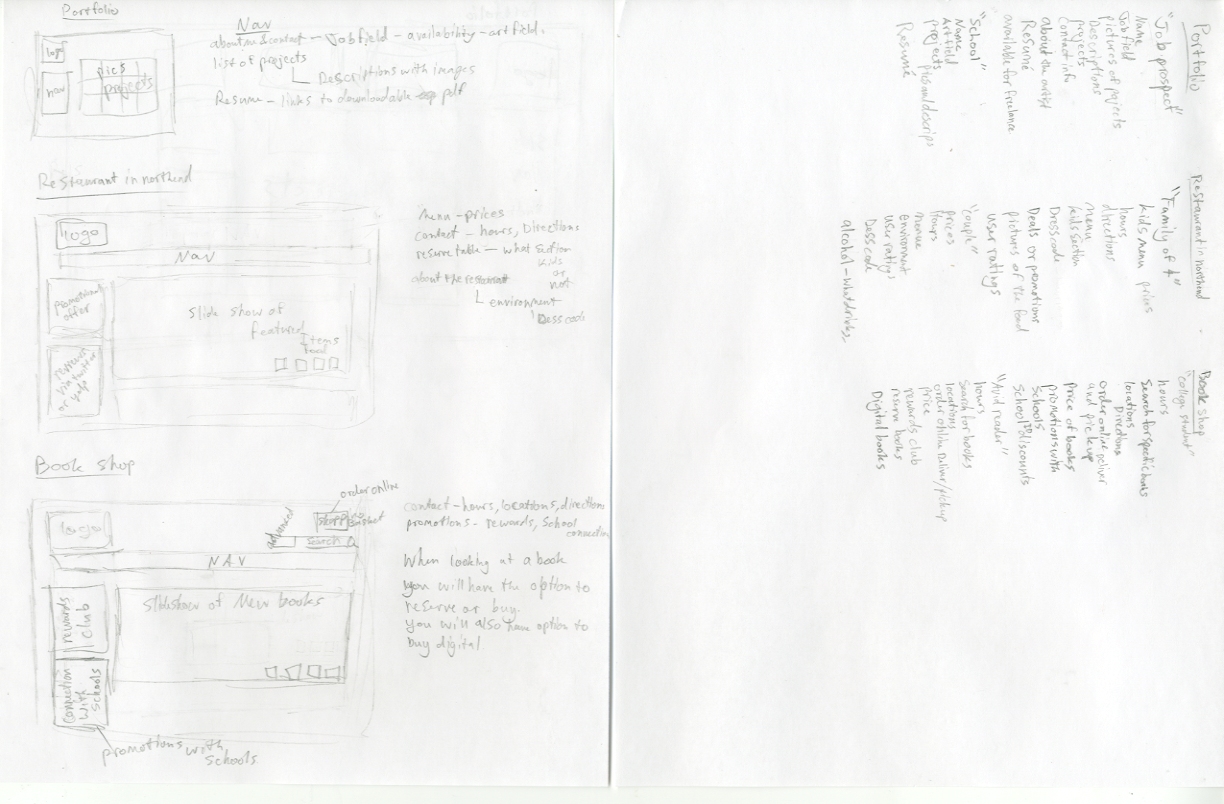 Portfolio
logo
nav
pics
projects
Nav
about me & contact - Job field - availability - art field.
list of projects
Descriptions with images
Resume - links to downloadable pdf
Restaurant in northend
logo
Nav
promotional
offer
reviews
via twitter
or yelp
Slide show of
featured
Items
food
Menu - prices
contact - hours, Directions
reserve table - what section
kids
or
not
about the restaurant
environment
Dess code
Book shop
logo
order online
shopping
basket
advanced
search
NAV
rewards
club
slideshow of New books
connection
with
schools
promotions with
schools
contact - hours, locations, directions
promotions - rewards, School
connection
When looking at a book
you will have the option to
reserve or buy.
you will also have option to
buy digital.
Portfolio
"Job prospect"
Name
Job field
pictures of pojects
Descriptions
projects
contact info
about the artist
Resumé
available for freelance
"School"
Name
Art field
projects
pics and descrips
Resumé
Restaurant in northend
"Family of 4"
kids menu prices
hours
directions
menu
kids section
Dress code
Deals or promotions
pictures of the food
user ratings
"couple"
prices
hours
menue
enviroment
user ratings
Dess code
alcohol - what drinks
Book shop
"college student"
hours
Search for specific books
locations
Directions
order online deliver
and pick up
Price of books
promotions with
schools
School ID discounts
"Avid reader"
hours
Search for books
locations
order online Deliver/pickup
price
rewards club
reserve books
Digital books